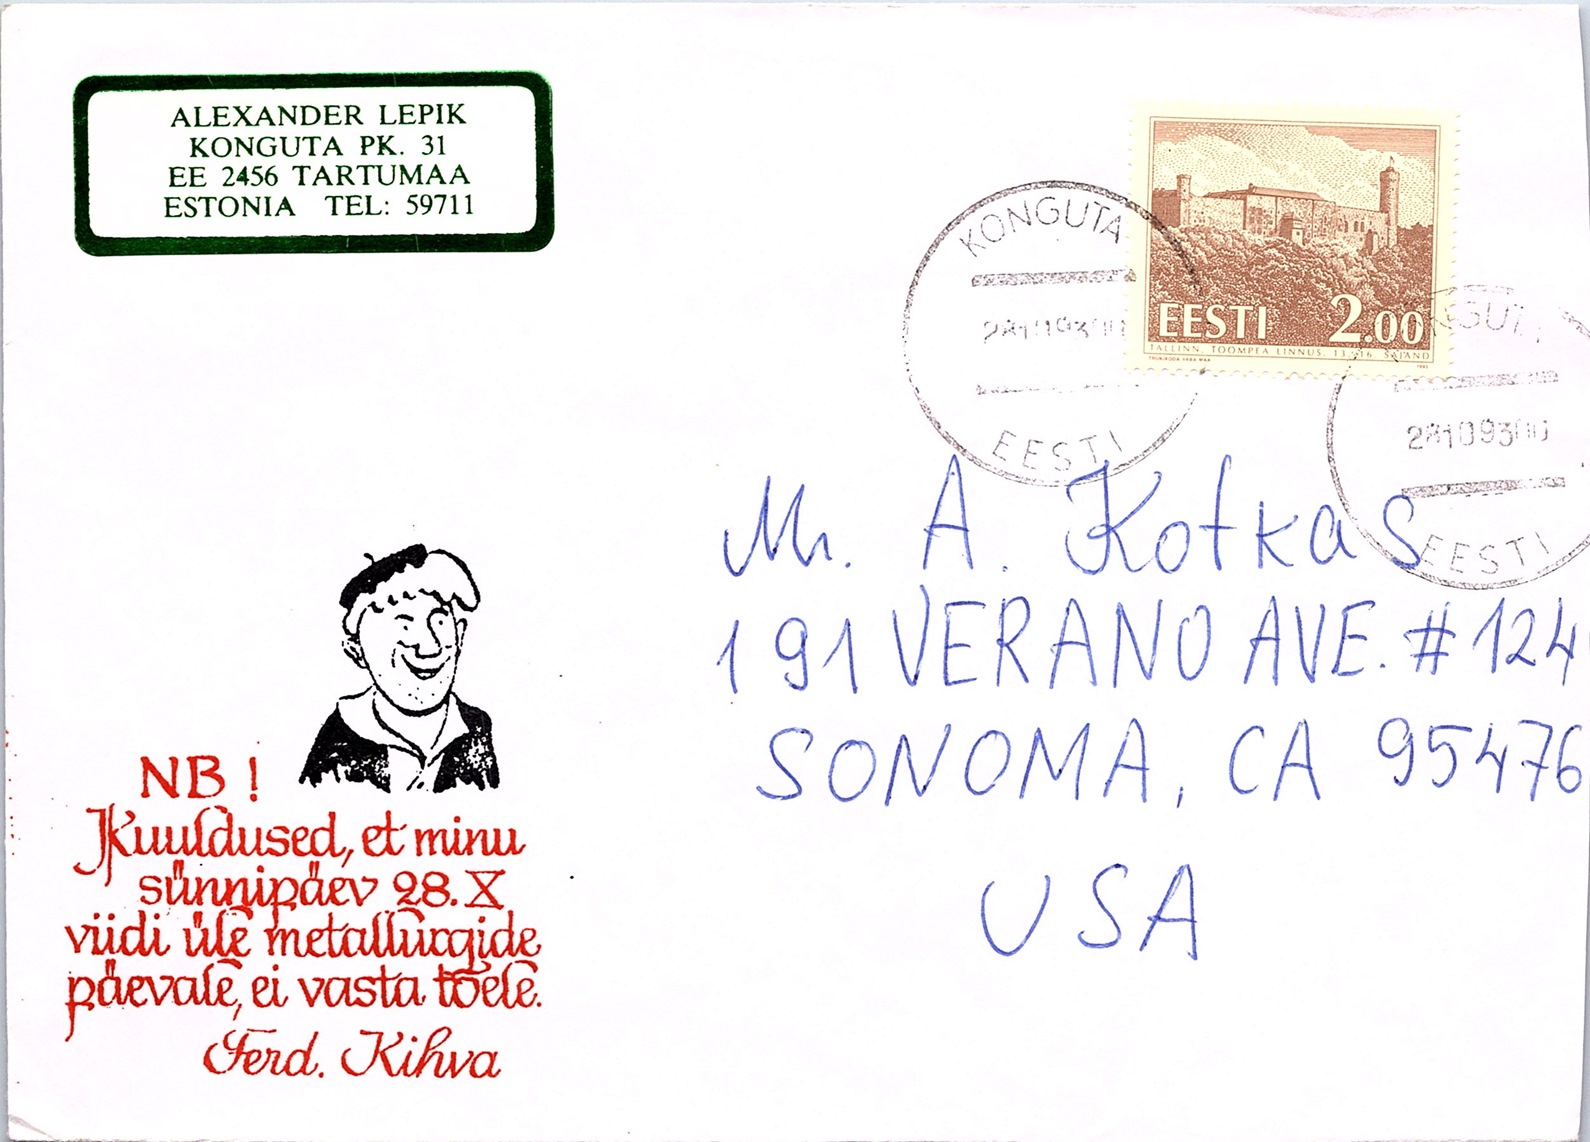 ALEXANDER LEPIK
KONGUTA PK. 31
EE 2456 TARTUMAA
ESTONIA TEL: 59711
KONGUTA
EESTI
EESTI 2.00
TALLINN. TOOMPEA LINNUS. 13.-16. SAJAND
1993
281093
EESTI
Mr. A. Kotkas
191 VERANO AVE. #124
SONOMA, CA 95476
USA
NB!
Kuuldused, et minu
sünnipäev 28.X
viidi üle metallurgide
päevale, ei vasta tõele.
Ferd. Kihva